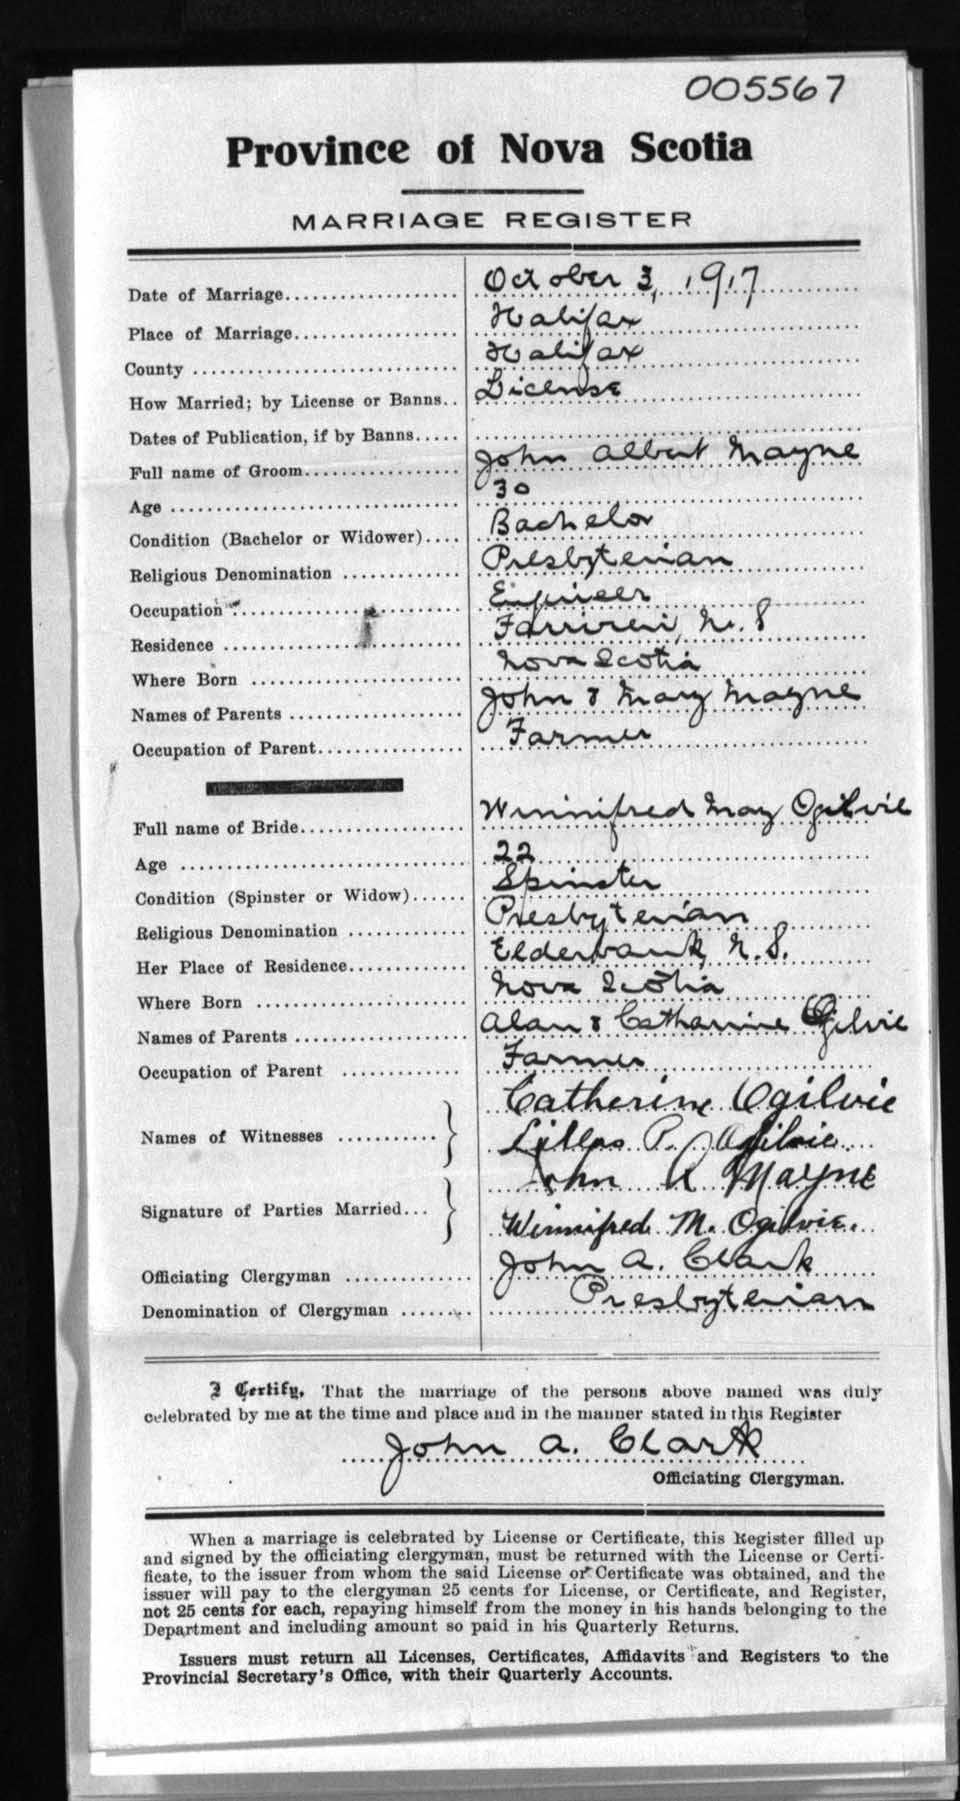 005567
Province of Nova Scotia
MARRIAGE REGISTER
Date of Marriage October 3, 1917
Place of Marriage Halifax
County Halifax
How Married; by License or Banns License
Dates of Publication, if by Banns
Full name of Groom John Albert Mayne
Age 30
Condition (Bachelor or Widower) Bachelor
Religious Denomination Presbyterian
Occupation Engineer
Residence N. S
Where Born Nova Scotia
Names of Parents John & Mary Mayne
Occupation of Parent Farmer
Full name of Bride Winnifred May Ogilvie
Age 22
Condition (Spinster or Widow) Spinster
Religious Denomination Presbyterian
Her Place of Residence Elderbank, N. S.
Where Born Nova Scotia
Names of Parents Alan & Catharine Ogilvie
Occupation of Parent Farmer
Names of Witnesses Catherine Ogilvie
P. Ogilvie
Signature of Parties Married John A Mayne
Winnifred M. Ogilvie.
Officiating Clergyman John A. Clark
Denomination of Clergyman Presbyterian
I Certify, That the marriage of the persons above named was duly
celebrated by me at the time and place and in the manner stated in this Register
John A. Clark
Officiating Clergyman.
When a marriage is celebrated by License or Certificate, this Register filled up
and signed by the officiating clergyman, must be returned with the License or Certi-
ficate, to the issuer from whom the said License or Certificate was obtained, and the
issuer will pay to the clergyman 25 cents for License, or Certificate, and Register,
not 25 cents for each, repaying himself from the money in his hands belonging to the
Department and including amount so paid in his Quarterly Returns.
Issuers must return all Licenses, Certificates, Affidavits and Registers to the
Provincial Secretary's Office, with their Quarterly Accounts.